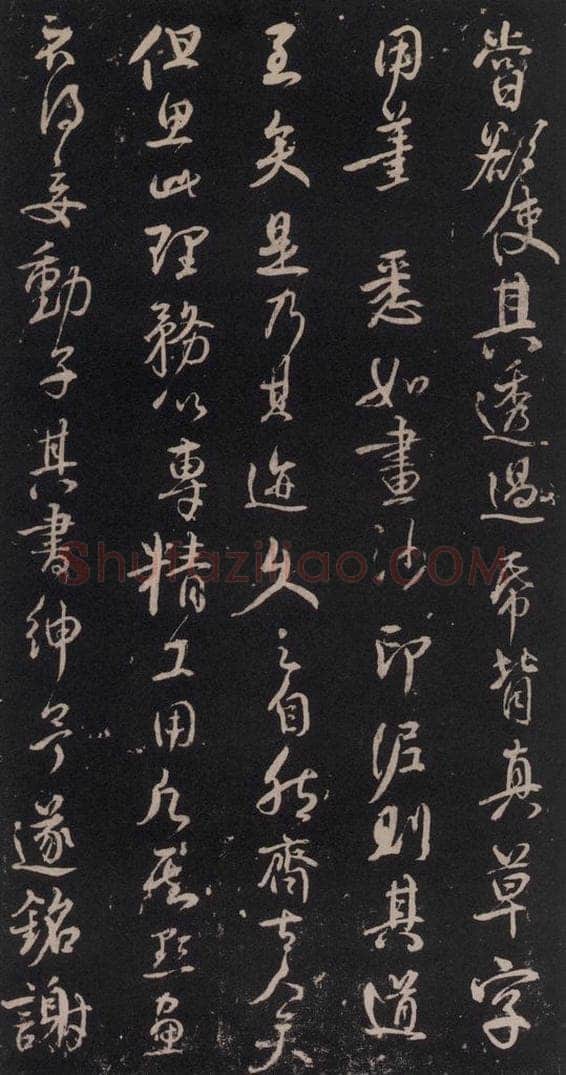 嘗欲使其透過帋背真草字
用筆悉如畫沙印泥則其道
至矣是乃其迹久之自然齊古人矣
但思此理務以專精工用其點畫
不得妄動子其書紳予遂銘謝
Shufaziliao.COM